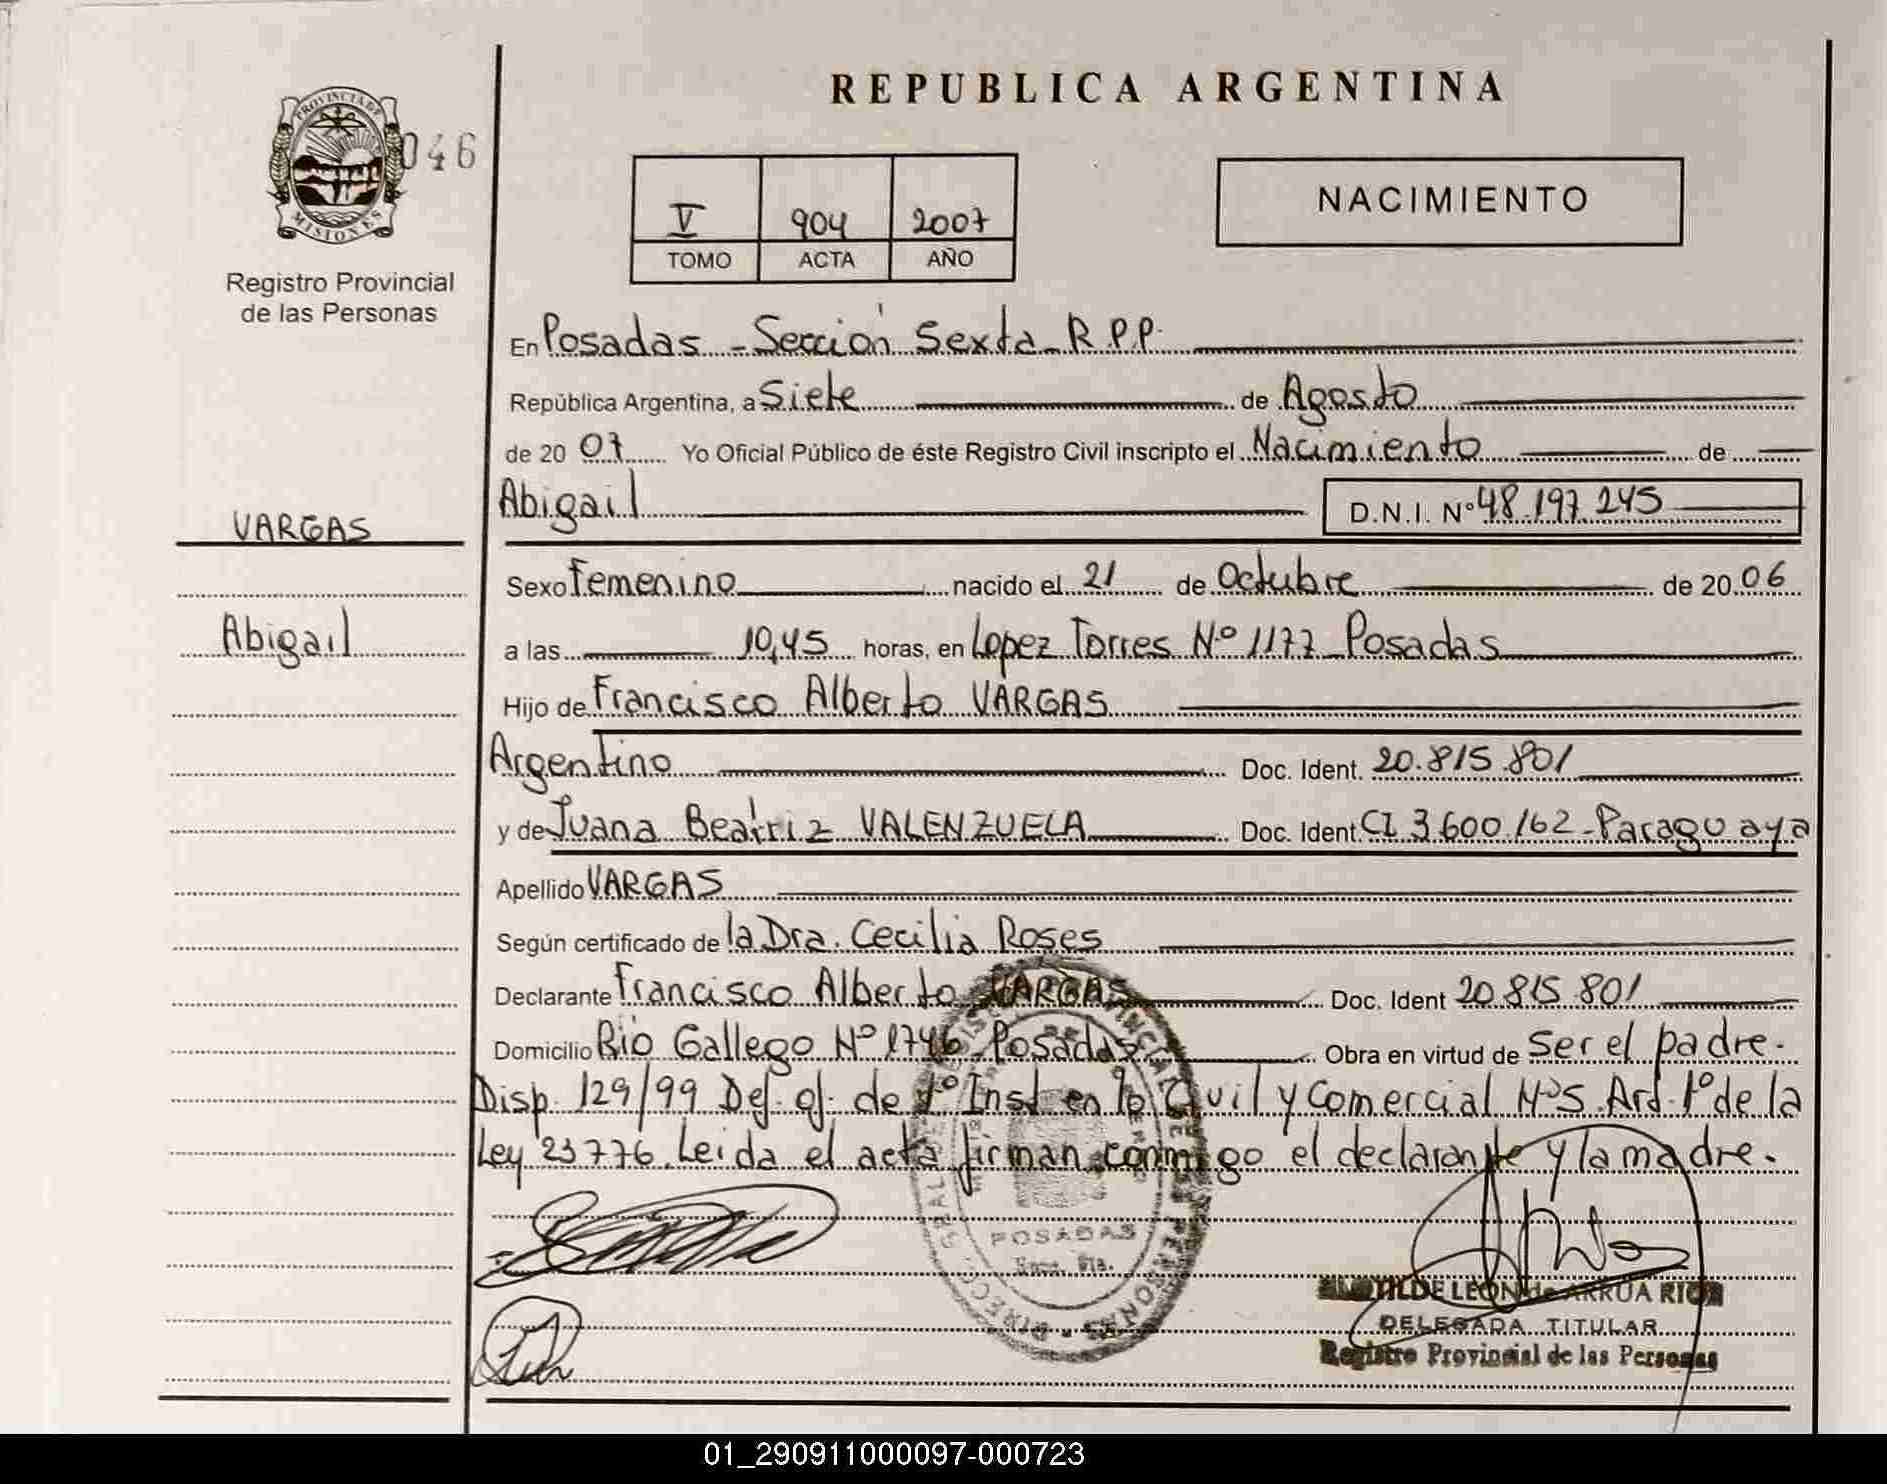 REPUBLICA ARGENTINA
PROVINCIA DE
MISIONES
046
Registro Provincial
de las Personas
V 904 2007
TOMO ACTA AÑO
NACIMIENTO
En Posadas - Sección Sexta R.P.P.
República Argentina, a Siete de Agosto
de 20 07 Yo Oficial Público de éste Registro Civil inscripto el Nacimiento de
Abigail D.N.I. Nº 48.197.245
VARGAS
Sexo Femenino nacido el 21 de Octubre de 20 06
Abigail
a las 10,45 horas, en Lopez Torres Nº 1177 Posadas
Hijo de Francisco Alberto VARGAS
Argentino Doc. Ident. 20.815.801
y de Juana Beatriz VALENZUELA Doc. Ident. CI 3.600.162 - Paraguaya
Apellido VARGAS
Según certificado de la Dra. Cecilia Roses
Declarante Francisco Alberto VARGAS Doc. Ident 20.815.801
Domicilio Rio Gallego Nº 1746 Posadas Obra en virtud de ser el padre.
Disp. 129/99 Def. of. de 1º Inst en lo Civil y Comercial Nº5. Art. 1º de la
Ley 23776. Leida el acta firman conmigo el declarante y la madre.
POSADAS
LEON de ARRUA RIOS
DELEGADA TITULAR
Registro Provincial de las Personas
01_290911000097-000723